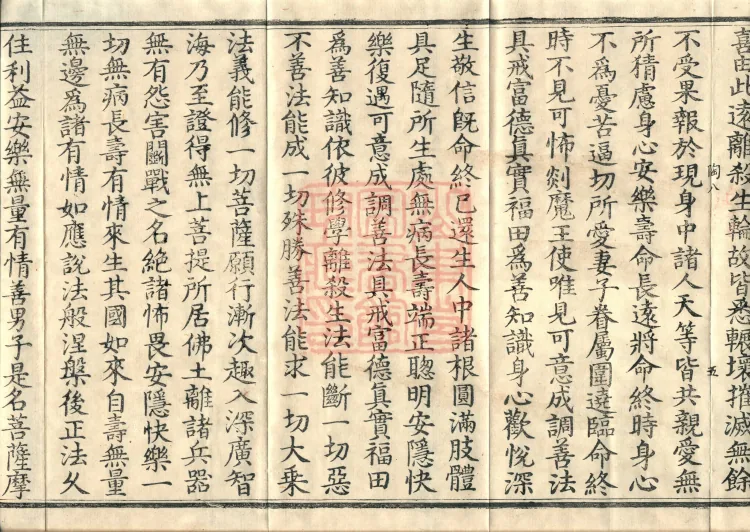 喜由此遠離殺生輪故皆悉輾壞摧滅無餘
陶八 五
不受果報於現身中諸人天等皆共親愛無
所猜慮身心安樂壽命長遠將命終時身心
不爲憂苦逼切所愛妻子眷屬圍遶臨命終
時不見可怖剡魔王使唯見可意成調善法
具戒富德眞實福田爲善知識身心歡悅深
生敬信旣命終已還生人中諸根圓滿肢體
具足隨所生處無病長壽端正聰明安隱快
樂復遇可意成調善法具戒富德眞實福田
爲善知識依彼修學離殺生法能斷一切惡
不善法能成一切殊勝善法能求一切大乘
法義能修一切菩薩願行漸次趣入深廣智
海乃至證得無上菩提所居佛土離諸兵器
無有怨害鬪戰之名絶諸怖畏安隱快樂一
切無病長壽有情來生其國如來自壽無量
無邊爲諸有情如應說法般涅槃後正法久
住利益安樂無量有情善男子是名菩薩摩